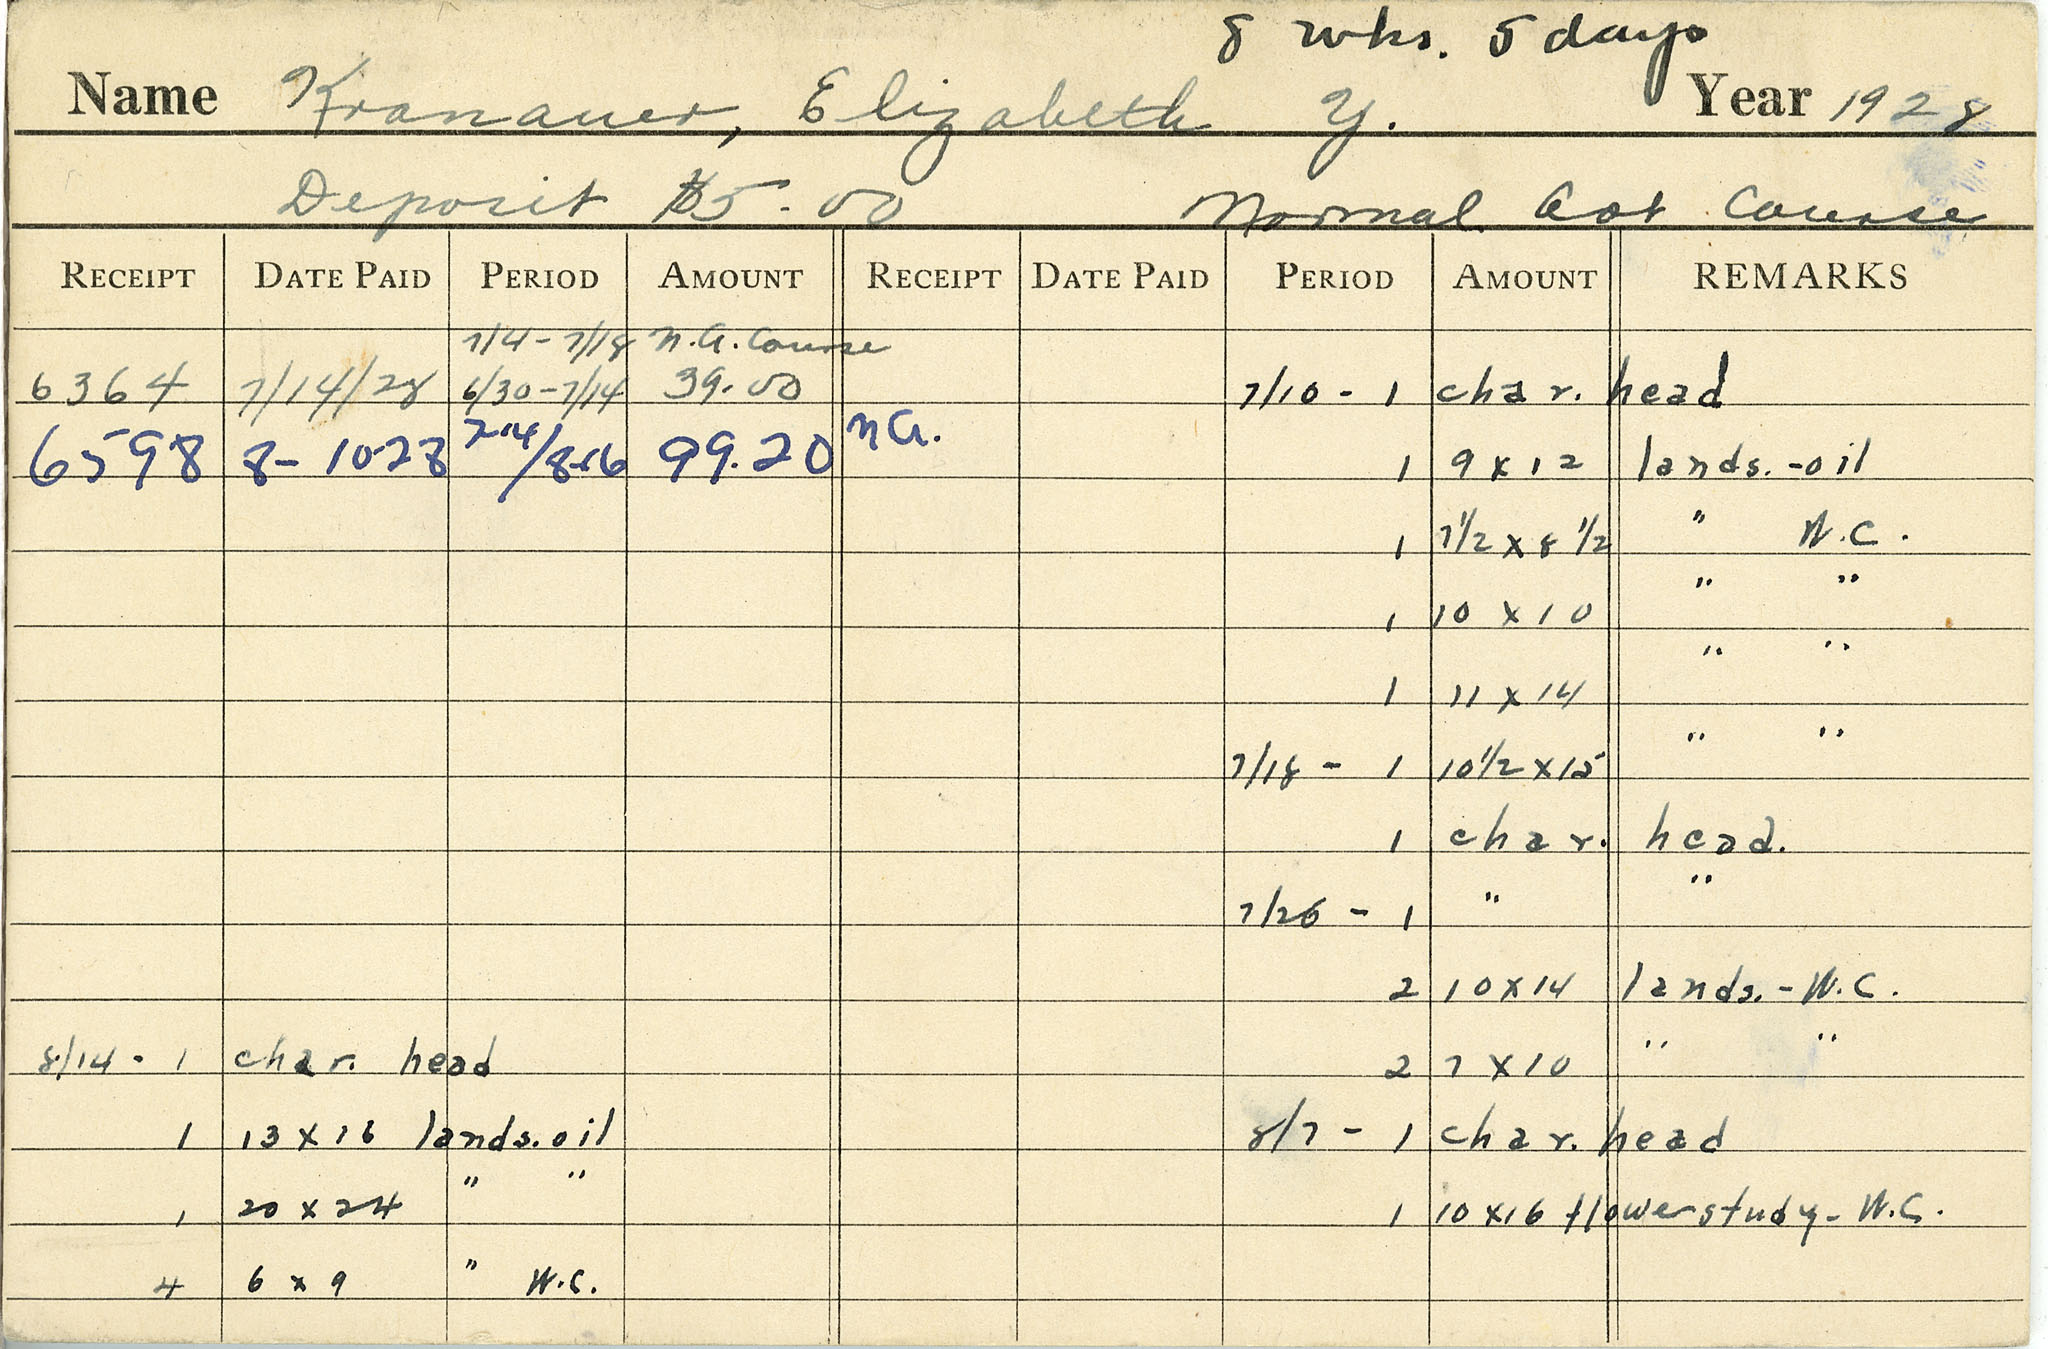 8 wks. 5 days
Name Kranauer, Elizabeth Y. Year 1928
Deposit $5.00 Normal Art Course
RECEIPT DATE PAID PERIOD AMOUNT RECEIPT DATE PAID PERIOD AMOUNT REMARKS
7/4-7/18 N.A. Course
6364 7/14/28 6/30-7/14 39.00 7/10 - 1 char. head
6598 8-10-28 99.20 N.A. 1 9 x 12 lands. - oil
1 7 1/2 x 8 1/2 " W.C.
1 10 x 10 " "
1 11 x 14 " "
7/18 - 1 10 1/2 x 15 " "
1 char. head.
7/26 - 1 " "
2 10 x 14 lands. - W.C.
8/14 - 1 char. head 2 7 x 10 " "
1 13 x 16 lands. oil 8/7 - 1 char. head
1 20 x 24 " " 1 10 x 16 flower study - W.C.
4 6 x 9 " W.C.